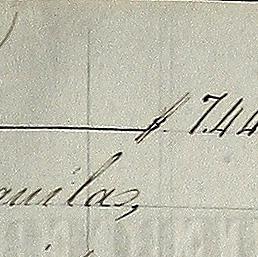 $ 7.44
quilas,